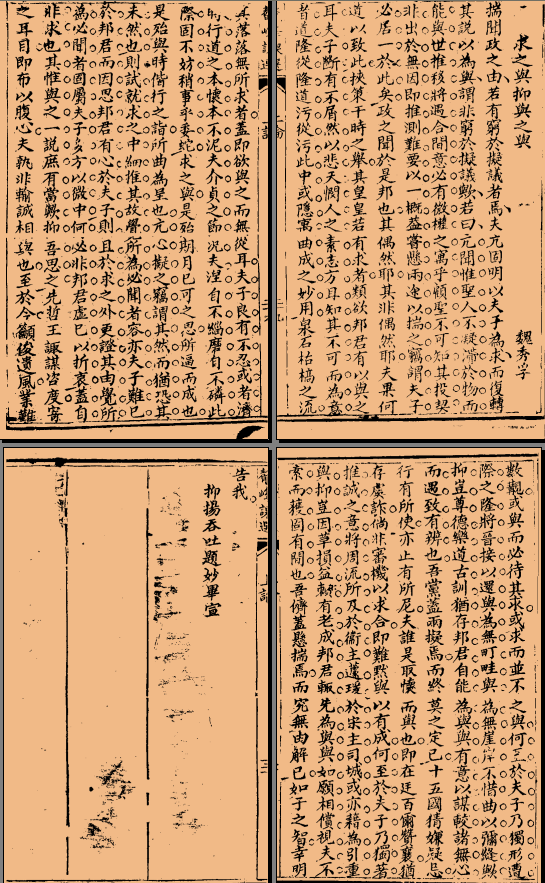 求之與抑與之與
魏秀孚
揣聞政之由若有窮於擬議者焉夫亢固明以夫子為求而復轉
其說以為與謂非窮於擬議歟若曰亢聞惟聖人不凝滯於物而
能與世推移將遇合間意必有微權之寓乎顧聖不可知其投契
非出於無因即推測難要以一概盍審兩途以揣之竊謂夫子
必居一於此矣政之聞於是邦也其偶然耶其非偶然耶夫果何
道以致此挾策干時之舉其皇皇若有求者類欲邦君有以與之
耳夫子斷有不屑然以悲天憫人之素志方且知其不可而為意
者道隆從隆道污從污此中或隱寓曲成之妙用泉石枯槁之流
其落落無所求者蓋即欲與之而無從耳夫子良有不忍或者濟
時行道之本懷本不泥夫介貞之節況夫涅自不緇磨自不磷此
際固不妨稍事乎委蛇求之與是殆期月已可之思所逼而成也
是殆與時偕行之詣所曲為呈也亢心擬之竊謂其然而猶恐其
未然也則試就求之中細推其故聲所為必聞者容亦夫子難已
於邦君而因思邦君有心於夫子則且於求之外更證其由覺所
為必聞者固屬夫子多方以微中何必非邦君虛已以折衷蓋自
非求也其惟與之一說庶有當歟抑吾思之先哲王諏謀咨度寄
之耳目即布以腹心夫孰非輸誠相與也至於今籲俊遺風業難
數覯或與而必待其求或求而並不之與何至於夫子乃獨形遭
際之隆將晉接以還與為無町畦與為無崖岸不惜曲以彌縫歟
抑豈尊德樂道古訓猶存邦君自能為與與有意以謀較諸無心
而遇致有辨也吾黨蓋兩擬焉而終莫之定已十五國猜嫌疑忌
行有所使亦止有所尼夫誰是取懷而與也即在廷百爾贊襄猶
存虞詐倘非審機以求合即難默與以有成何至於夫子乃獨著
推誠之意將周流所及於衛主蘧瑗於宋主司城或亦藉為引重
與抑豈因革損益有老成邦君輒先為與與如願相償視夫不
索而獲固有間也吾儕蓋懸揣焉而究無由解已如子之智幸明
告我
抑揚吞吐題妙畢宣